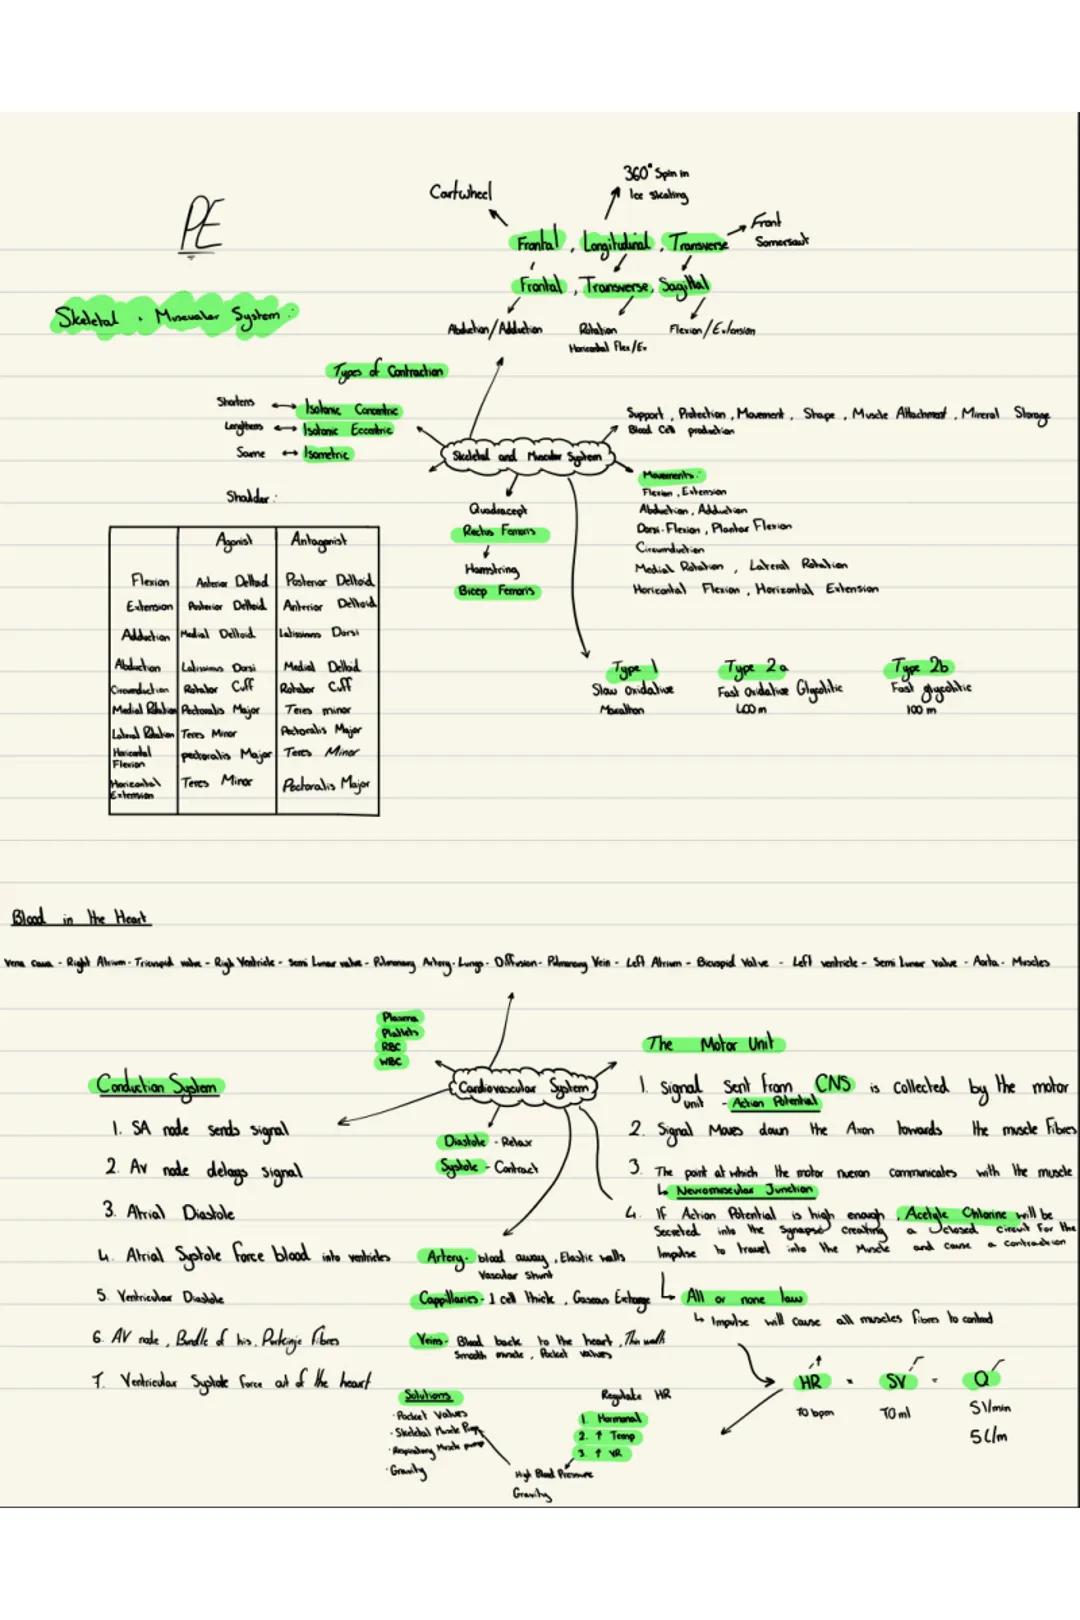 PE
Skeletal + Muscualar System:
Cartwheel
360° Spin in
Ice Skating
Front
Somersault
Frontal, Longitudinal, Transverse
Frontal, Transverse, Sagittal
Abduction/Adduction
Rotation
Horizontal Flex/Ex
Flexion/Extension
Types of Contraction
Shortens ↔ Isotonic Concentric
Lengthens ↔ Isotonic Eccentric
Same ↔ Isometric
Skeletal and Muscular System
Support, Protection, Movement, Shape, Muscle Attachment, Mineral Storage
Blood Cell production
Movements:
Flexion, Extension
Abduction, Adduction
Dorsi-Flexion, Plantar Flexion
Circumduction
Medial Rotation, Lateral Rotation
Horizontal Flexion, Horizontal Extension
Quadracept
Rectus Femoris
Hamstring
Bicep Femoris
Type 1
Slow oxidative
Marathon
Type 2a
Fast oxidative Glycolitic
400m
Type 2b
Fast glycolitic
100m
Shoulder:
Agonist Antagonist
Flexion Anterior Deltoid Posterior Deltoid
Extension Posterior Deltoid Anterior Deltoid
Adduction Medial Deltoid Latissimus Dorsi
Abduction Latissimus Dorsi Medial Deltoid
Circumduction Rotator Cuff Rotator Cuff
Medial Rotation Pectoralis Major Teres minor
Lateral Rotation Teres Minor Pectoralis Major
Horizontal Flexion pectoralis Major Teres Minor
Horizontal Extension Teres Minor Pectoralis Major
Blood in the Heart
Vena cava - Right Atrium - Tricuspid valve - Righ Ventricle - Semi Lunar valve - Pulmonary Artery - Lungs - Diffusion - Pulmonary Vein - Left Atrium - Bicuspid Valve - Left ventricle - Semi Lunar valve - Aorta - Muscles
Plasma
Platlets
RBC
WBC
Cardiovascular System
Diastole - Relax
Systole - Contract
Conduction System
1. SA node sends signal
2. AV node delays signal
3. Atrial Diastole
4. Atrial Systole force blood into ventricles
5. Ventricular Diastole
6. AV node, Bundle of his, Purkinje Fibres
7. Ventricular Systole force out of the heart
Artery - blood away, Elastic walls
Vascular Shunt
Cappillaries - 1 cell thick, Gaseous Exchange
Veins - Blood back to the heart, Thin walls
Smooth muscle, Pocket valves
Solutions
· Pocket Valves
· Skeletal Muscle Pump
· Respiratory Muscle pump
· Gravity
Regulate HR
1. Hormonal
2. ↑ Temp
3. ↑ VR
High Blood Pressure
Gravity
The Motor Unit
1. Signal sent from CNS is collected by the motor
unit - Action Potential
2. Signal Moves down the Axon towards the muscle Fibres
3. The point at which the motor nueron communicates with the muscle
↳ Neuromuscular Junction
4. IF Action Potential is high enough, Acetyle Chlorine will be
Secreted into the Synapse creating a closed circuit for the
Impulse to travel into the Muscle and cause a contraction
↳ All or none law
↳ Impulse will cause all muscles fibres to contract
HR × SV = Q
70 bpm 70 ml 5l/min
5L/m